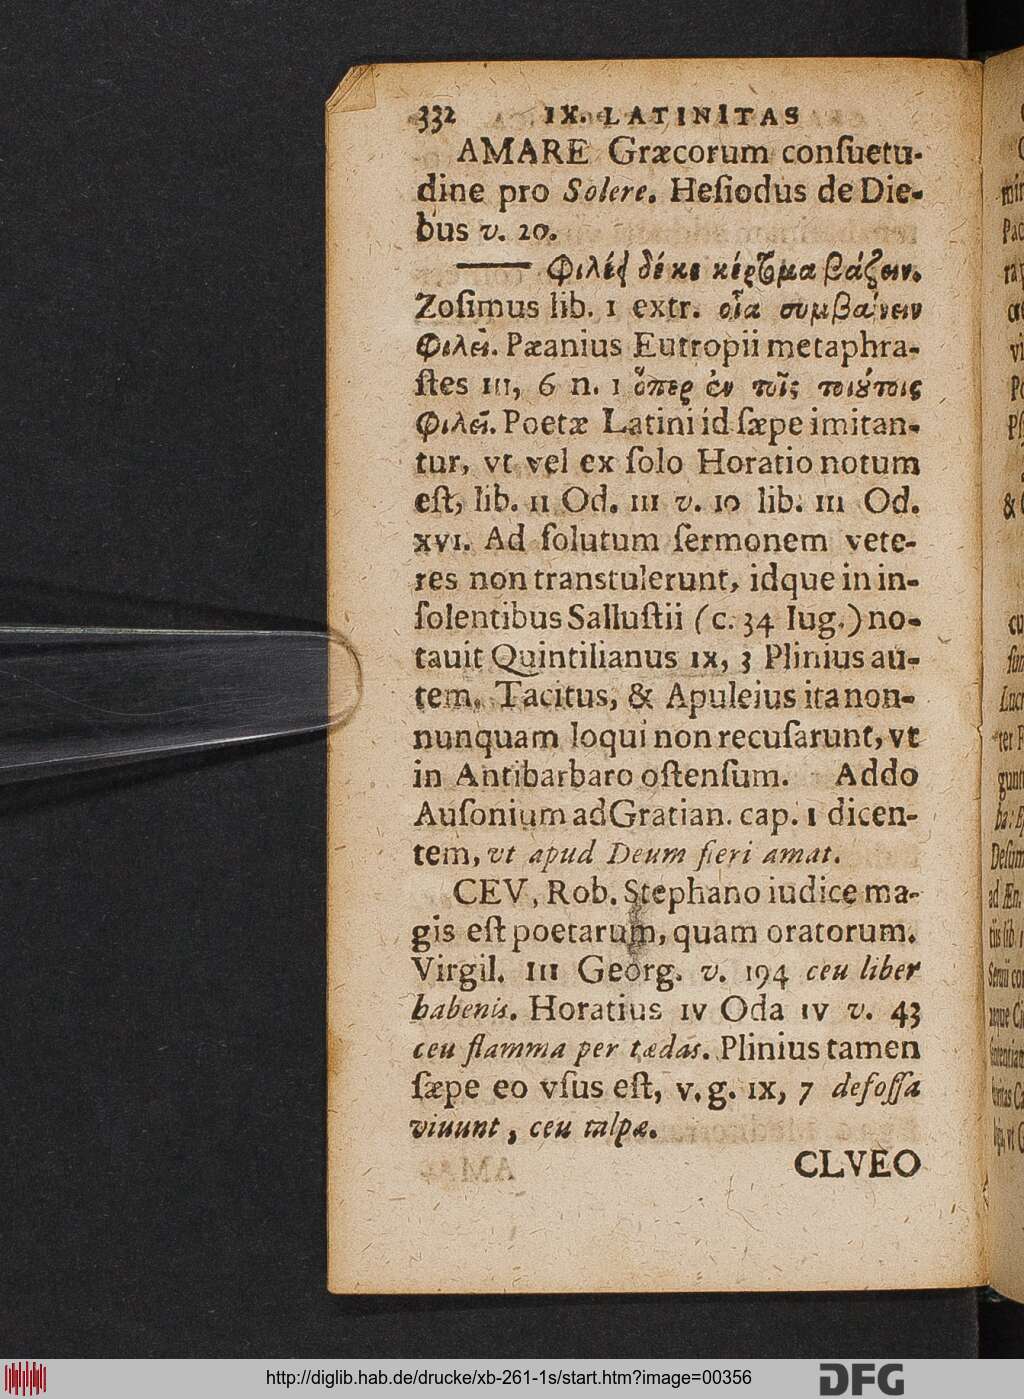 332 IX. LATINITAS
AMARE Græcorum conſuetu-
dine pro Solere. Heſiodus de Die-
bus v. 20.
—— Φιλέει δέ κε κέρτομα βάζειν.
Zoſimus lib. I extr. οἷα συμβαίνειν
φιλεῖ. Pæanius Eutropii metaphra-
ſtes III, 6 n. 1 ὅπερ ἐν τοῖς τοιούτοις
φιλεῖ. Poetæ Latini id ſæpe imitan-
tur, vt vel ex ſolo Horatio notum
eſt, lib. II Od. III v. 10 lib. III Od.
XVI. Ad ſolutum ſermonem vete-
res non transtulerunt, idque in in-
ſolentibus Salluſtii (c. 34 Iug.) no-
tauit Quintilianus IX, 3 Plinius au-
tem, Tacitus, & Apuleius ita non-
nunquam loqui non recuſarunt, vt
in Antibarbaro oſtenſum. Addo
Auſonium ad Gratian. cap. 1 dicen-
tem, vt apud Deum fieri amat.
CEV, Rob. Stephano iudice ma-
gis eſt poetarum, quam oratorum.
Virgil. III Georg. v. 194 ceu liber
habenis. Horatius IV Oda IV v. 43
ceu flamma per tædas. Plinius tamen
ſæpe eo vſus eſt, v. g. IX, 7 defoſſa
viuunt, ceu talpæ.
CLVEO
http://diglib.hab.de/drucke/xb-261-1s/start.htm?image=00356
DFG